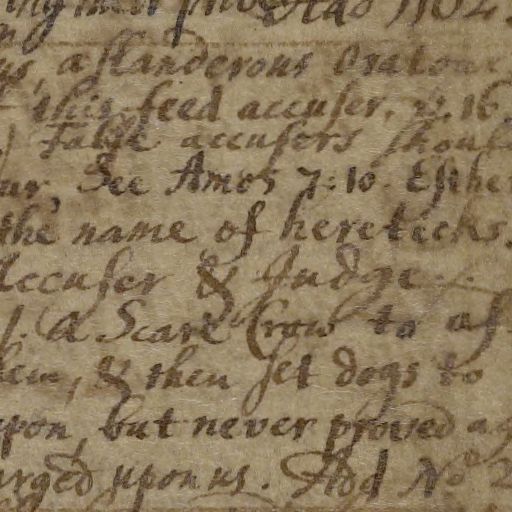 us, a slanderous Orator
this feed accuser, v. 16
False accusers shoul
ur, See Amos 7:10. Esther
the name of hereticks.
Accuser & Judge.
. A Scare Crow to af
hem, & then set dogs to
upon, but never proved ag
arged upon us. Add No 2